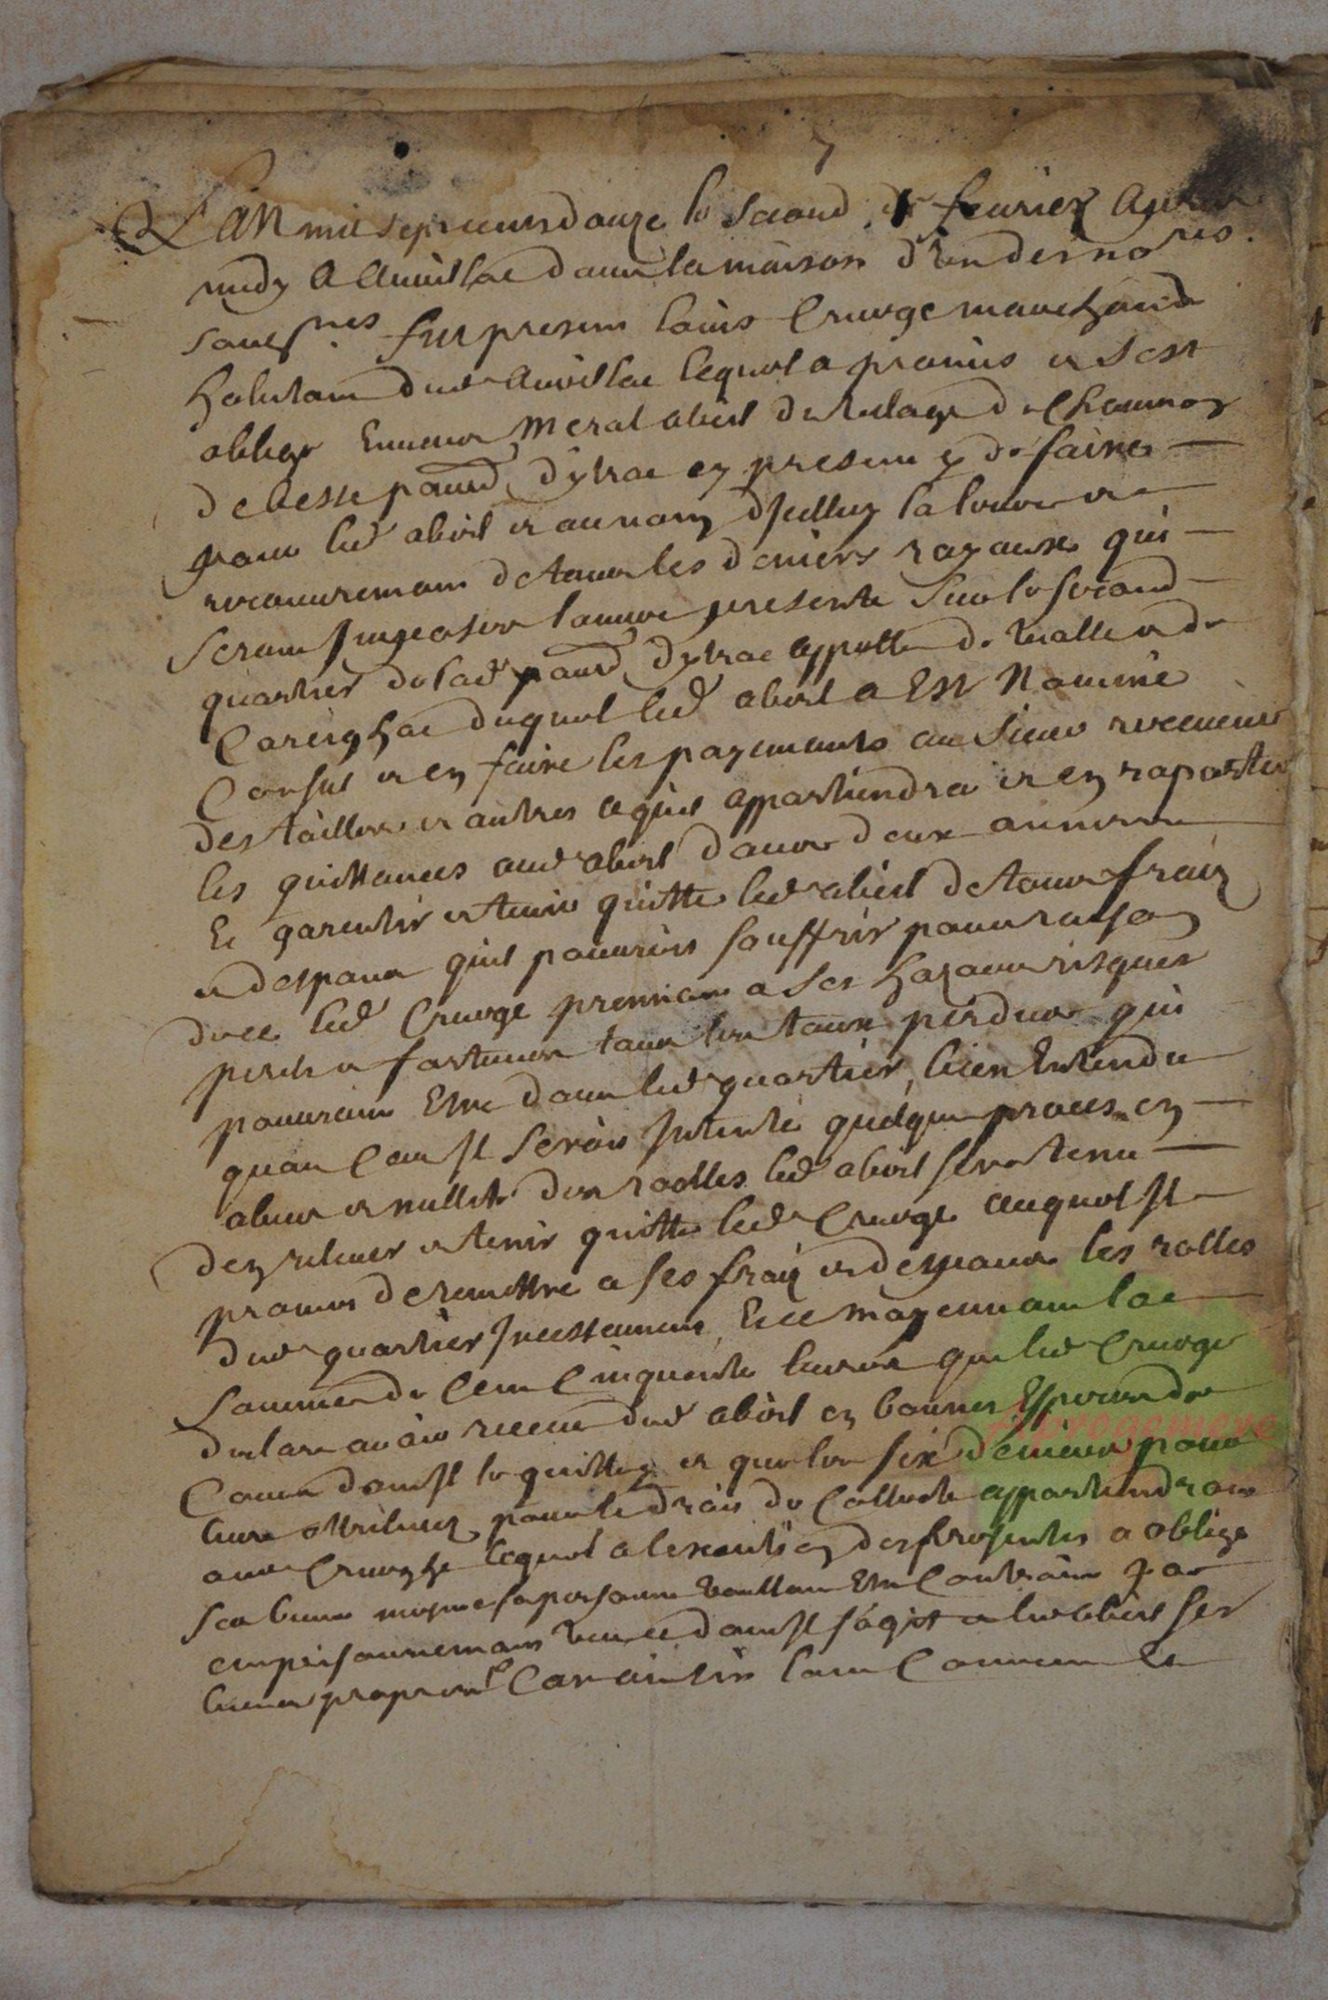 7
L'an mil sept cens douze le second de feurier apres
midy a Aurilhac dans la maison d'un des no.res
soubs.nes fut presens louis Cruege marchand
habitant dud Aurilhac lequel a promis et sest
obligé enuers meral abeil du uilage de Chaumon
de besse parr.e d'ytrac cy present de faire
pour led abeil et au nom dJcelluy la leuee et
recouurement de tous les deniers royaux qui
seront Jmposes lannee presente sur le second
quartier de lad parr.e dytrac appellé de Vialle et de
Careighac duquel led abeil a Est Nommé
Consul et en faire les payements au sieur receueur
des tailles et autres a quil appartiendra et en raporter
les quittances aud abeil dans deux annees
Et garentir et tenir quitte led abeil de tous fraix
et despans quil pourroit souffrir pour raison
de ce led Cruege prennant a ses hazards risques
perils et fortunes tous les taux perdus qui
pourroint Estre dans led quartier, bien Entendu
quau Cas Jl seroit Jntenté quelque proces en
abus et nullité des rolles led abeil sera tenu
den releuer et tenir quitte led Cruege auquel Jl
promet de remettre a ses fraix et despans les rolles
dud quartier Jncessament, Et ce moyennant la
somme de Cent Cinquante liures que led Cruege
declare auoir receue dud abeil en bonnes Especes de
Cours dont Jl le quitte et que les six deniers pour
liure attribues pour le droit de Collecte appartiendront
aud Crueghe lequel a lexecution des presentes a obligé
ses biens mesme sa personne Voullant Estre Contraint par
emprisonnement Veu ce dont Jl s'agit et led abeil ses
biens propres Car ainsin lont Conuenu Et
Aprogemere